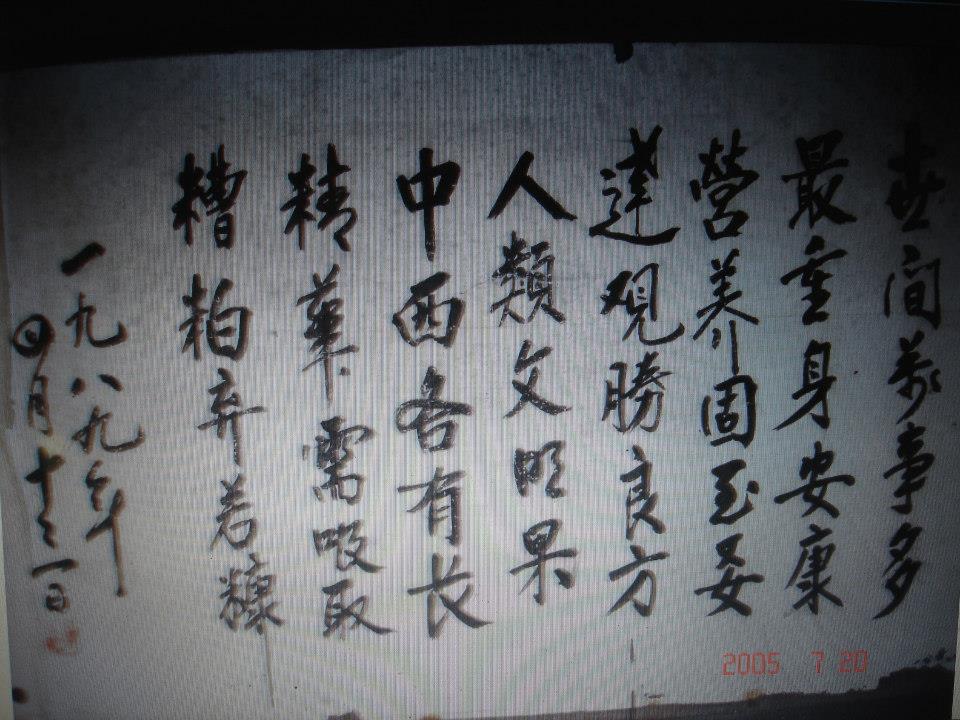 世間萬事多
最重身安康
營养固至要
達观勝良方
人類文明果
中西各有长
精華需吸取
糟粕弃若糠
一九八九年
四月十三日
2005 7 20